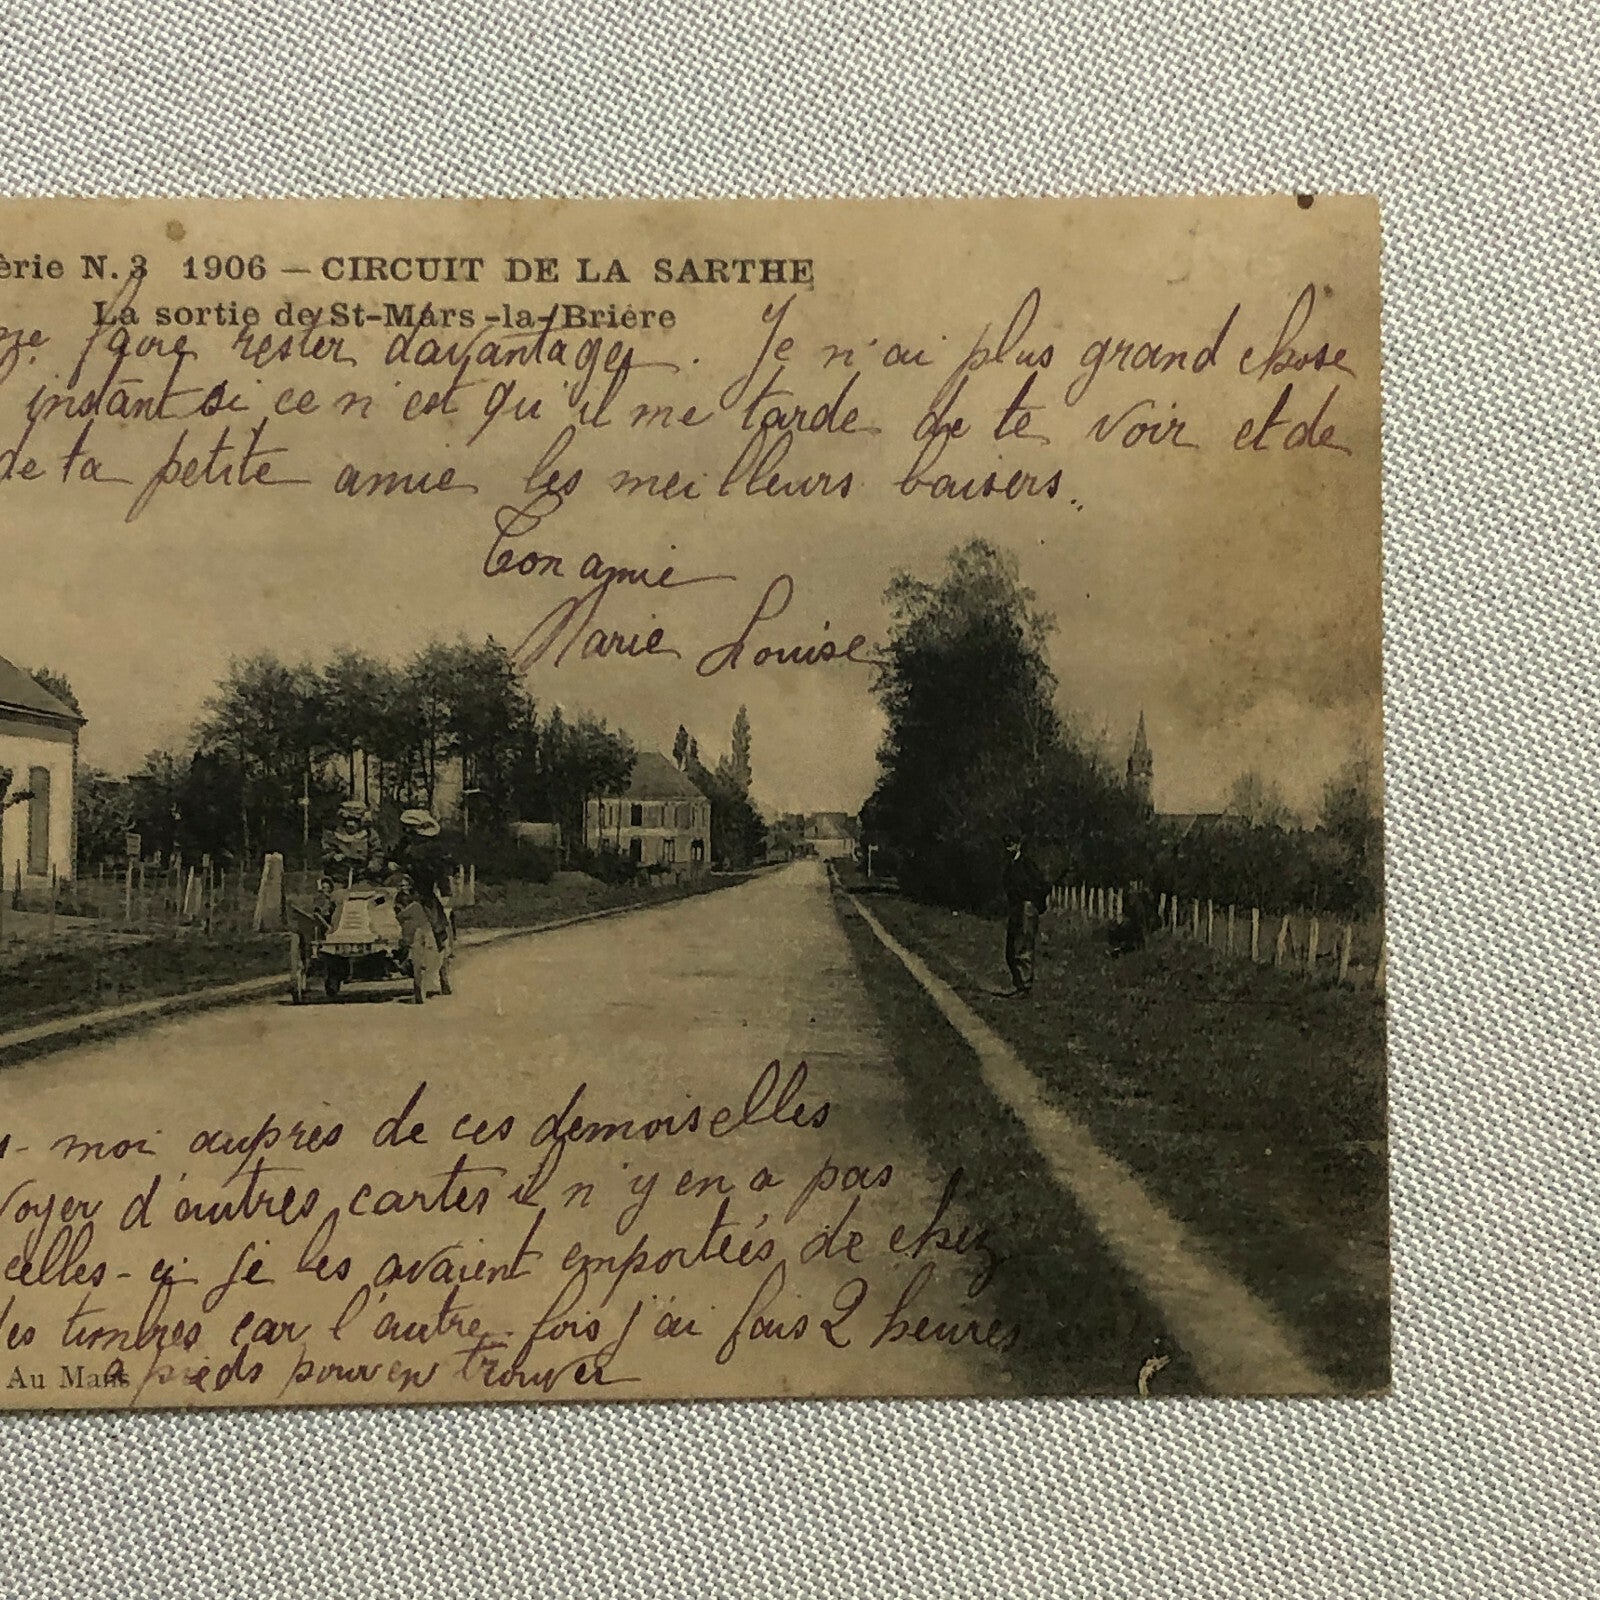 érie N. 3 1906 – CIRCUIT DE LA SARTHE
La sortie de St-Mars-la-Brière
faire rester davantages. Je n'ai plus grand chose
instant si ce n'est qu'il me tarde de te voir et de
de ta petite amie les meilleurs baisers.
Ton amie
Marie Louise
moi auprès de ces demoiselles
voyer d'autres cartes il n'y en a pas
celles-ci je les avaient emporteés de chez
des timbres car l'autre fois j'ai fais 2 heures
a pieds pour en trouver
Au Mans